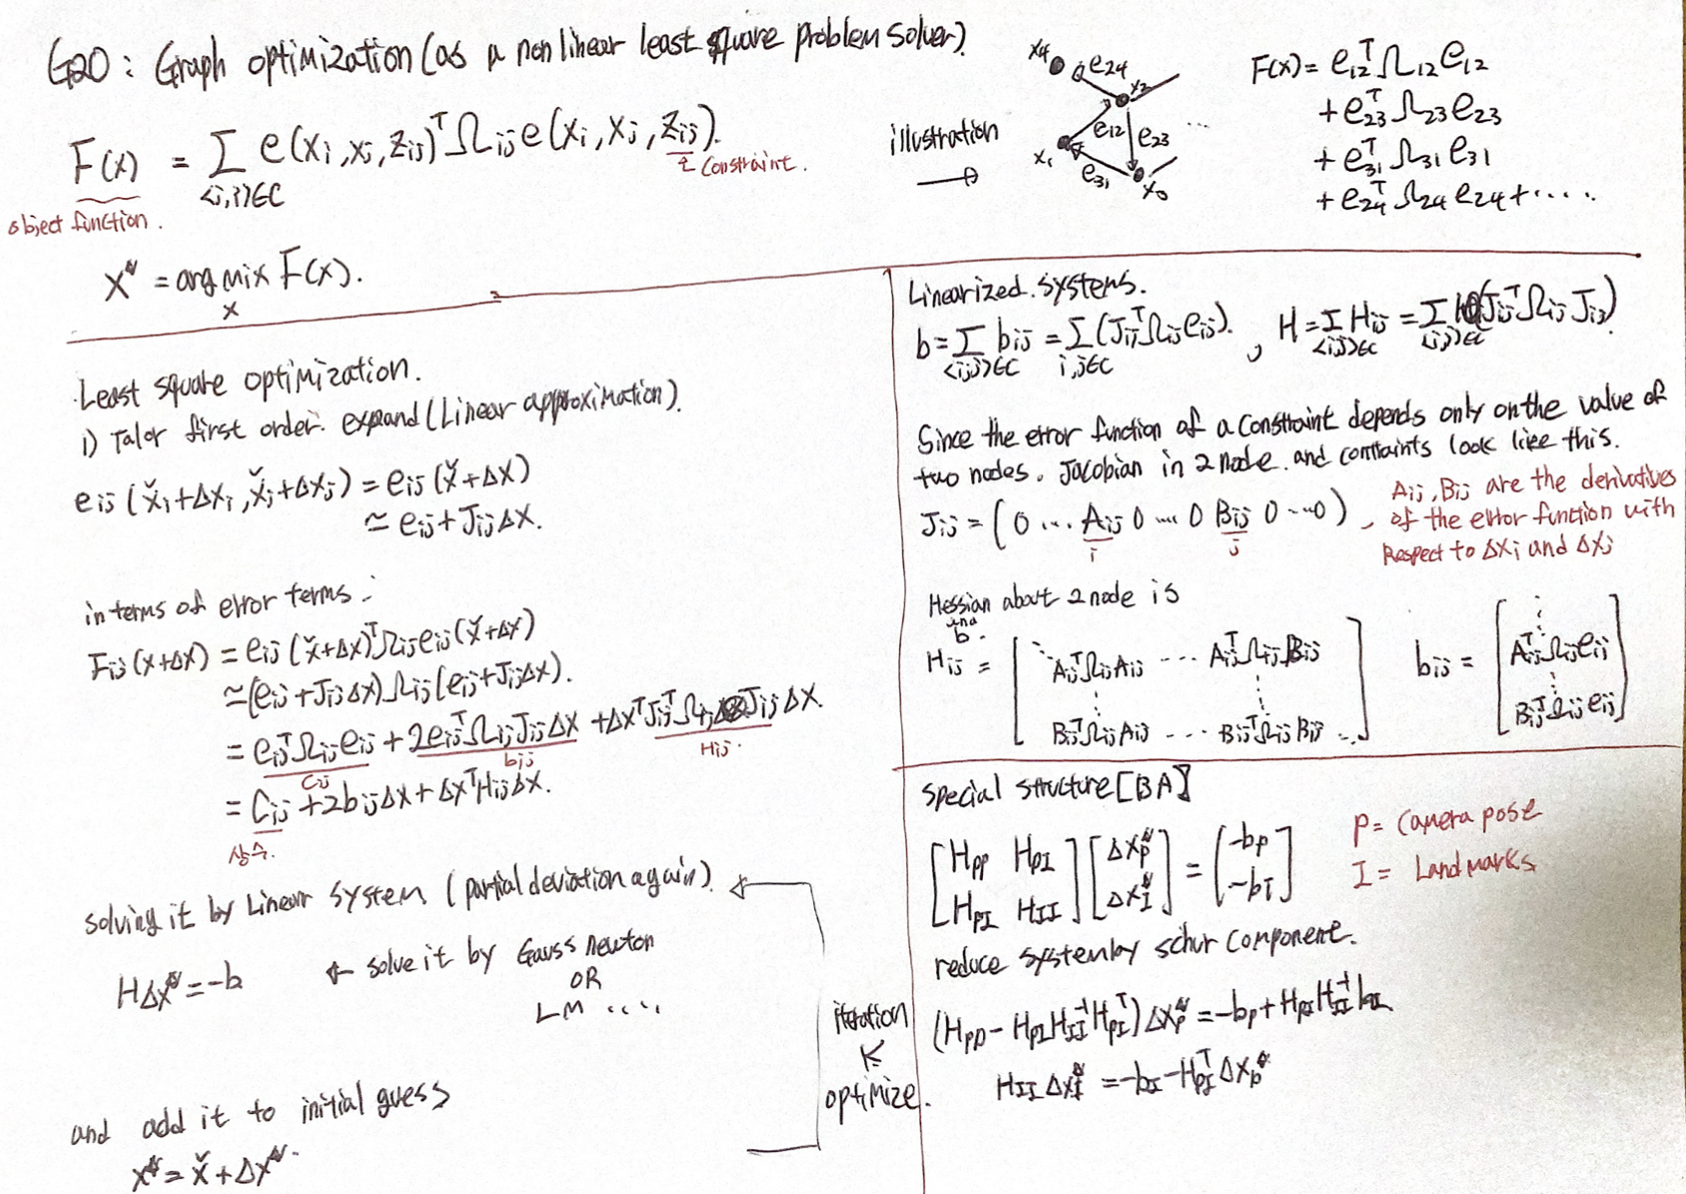 G2O : Graph optimization (as a nonlinear least square problem solver).
F(x) = Σ e(xi, xj, zij)ᵀ Ωij e(xi, xj, zij).
<i,j>∈C
constraint.
object function.
x* = arg mix F(x).
x
illustration
x4 e24 x2
e12 e23 ...
x1 e31
F(x) = e12ᵀ Ω12 e12
+ e23ᵀ Ω23 e23
+ e31ᵀ Ω31 e31
+ e24ᵀ Ω24 e24 + ....
Least square optimization.
1) Talor first order. expand (Linear approximation).
eij (x̌i+Δxi, x̌j+Δxj) = eij (x̌+Δx)
≃ eij + Jij Δx.
in terms of error terms :
Fij (x+Δx) = eij (x̌+Δx)ᵀ Ωij eij (x̌+Δx)
≃ (eij + Jij Δx) Ωij (eij + Jij Δx).
= eijᵀ Ωij eij + 2eijᵀ Ωij Jij Δx + Δxᵀ Jijᵀ Ωij Jij Δx.
Cij bij Hij.
= Cij + 2bij Δx + Δxᵀ Hij Δx.
상수.
solving it by Linear system (partial deviation again).
HΔx* = -b ← solve it by Gauss newton
OR
LM ....
and add it to initial guess
x* = x̌ + Δx*.
iteration
K
optimize.
Linearized. systems.
b = Σ bij = Σ (Jijᵀ Ωij eij). , H = Σ Hij = Σ (Jijᵀ Ωij Jij)
<i,j>∈C i,j∈C <ij>∈C <ij>∈C
Since the error function of a constraint depends only on the value of
two nodes. Jacobian in 2 node. and contraints look like this.
Jij = (0 ... Aij 0 ... 0 Bij 0 ... 0) ,
i j
Aij, Bij are the derivatives
of the error function with
Respect to Δxi and Δxj
Hessian about 2 node is
and
b.
Hij = [ ⋱ Aijᵀ Ωij Aij ... Aijᵀ Ωij Bij
⋮ ⋮
Bijᵀ Ωij Aij ... Bijᵀ Ωij Bij ... ]
bij = [ ⋮
Aijᵀ Ωij eij
⋮
Bijᵀ Ωij eij ]
special structure [BA]
[ Hpp HpI ] [ Δxp* ] = [ -bp ]
[ HpI HII ] [ ΔxI* ] [ -bI ]
P = Camera pose
I = Landmarks
reduce system by schur component.
(Hpp - HpI HII⁻¹ HpIᵀ) Δxp* = -bp + HpI HII⁻¹ bI
HII ΔxI* = -bI - HpIᵀ Δxp*